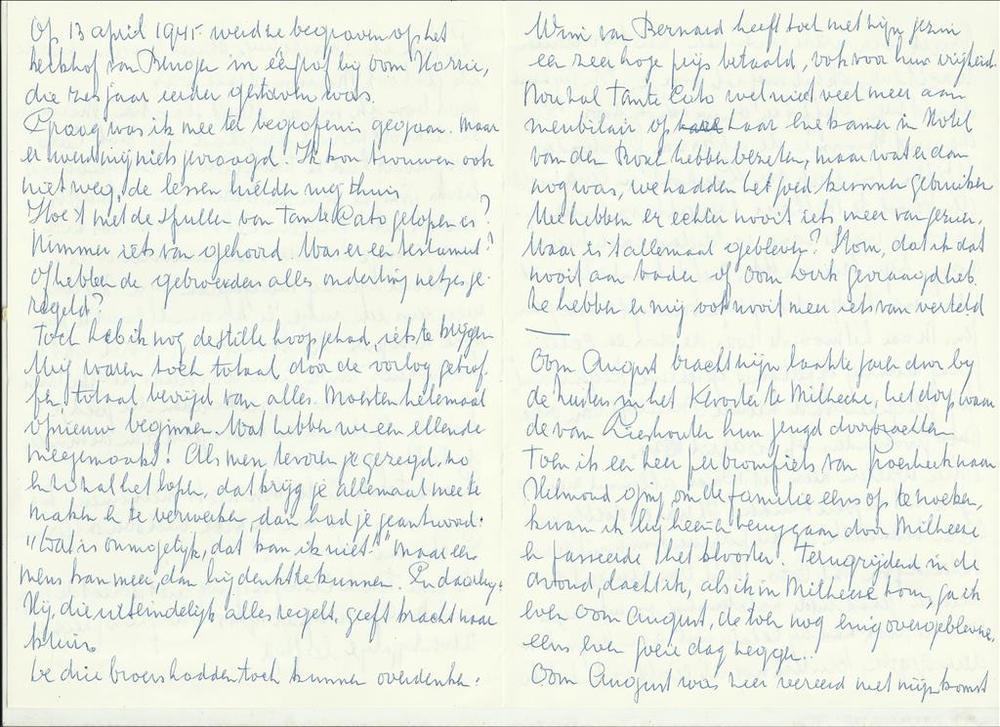 Op 13 april 1945 werd ze begraven op het
kerkhof van Beugen in één graf bij oom Harrie,
die zes jaar eerder gestorven was.
Graag was ik mee ter begrafenis gegaan. Maar
er werd mij niets gevraagd. Ik kon trouwens ook
niet weg, de lessen hielden mij thuis.
Hoe 't met de spullen van tante Cato gelopen is?
Nimmer iets van gehoord. Was er een testament?
Of hebben de gebroeders alles onderling netjes ge-
regeld?
Toch heb ik nog de stille hoop gehad, iets te krijgen
Wij waren toch totaal door de oorlog getrof-
fen totaal berooid van alles. Moesten helemaal
opnieuw beginnen. Wat hebben we een ellende
meegemaakt! Als men tevoren je gezegd, zo
en zo zal het lopen, dat krijg je allemaal mee te
maken en te verwerken, dan had je geantwoord:
"Dat is onmogelijk, dat kan ik niet!" Maar een
mens kan meer, dan hij denkt te kunnen. En daarbij:
Hij, die uiteindelijk alles regelt, geeft kracht naar
kruis.
De drie broers hadden toch kunnen overdenken:
Wim van Bernard heeft toch met zijn gezin
een zeer hoge prijs betaald, ook voor hun vrijheid.
Nou zal tante Cato wel niet veel meer aan
meubilair op haar ene kamer in Hotel
van den Boxel hebben bezeten, maar wat er dan
nog was, we hadden het goed kunnen gebruiken
We hebben er echter nooit iets meer van gezien.
Waar is 't allemaal gebleven? Stom, dat ik dat
nooit aan vader of oom gevraagd heb.
Ze hebben er mij ook nooit meer iets van verteld
Oom August bracht zijn laatste jaren door bij
de zusters in het Klooster te Milheeze, het dorp waar
de van hun jeugd doorbrachten
Toen ik een keer per bromfiets van Groesbeek naar
Helmond ging om de familie eens op te zoeken,
kwam ik bij heen en teruggaan door Milheeze
en passeerde 't klooster. Terugrijdend in de
avond, dacht ik, als ik in Milheeze kom, ga ik
even oom August, de toen nog enig overgeblevene,
eens even goeie dag zeggen..
Oom August was zeer vereerd met mijn komst